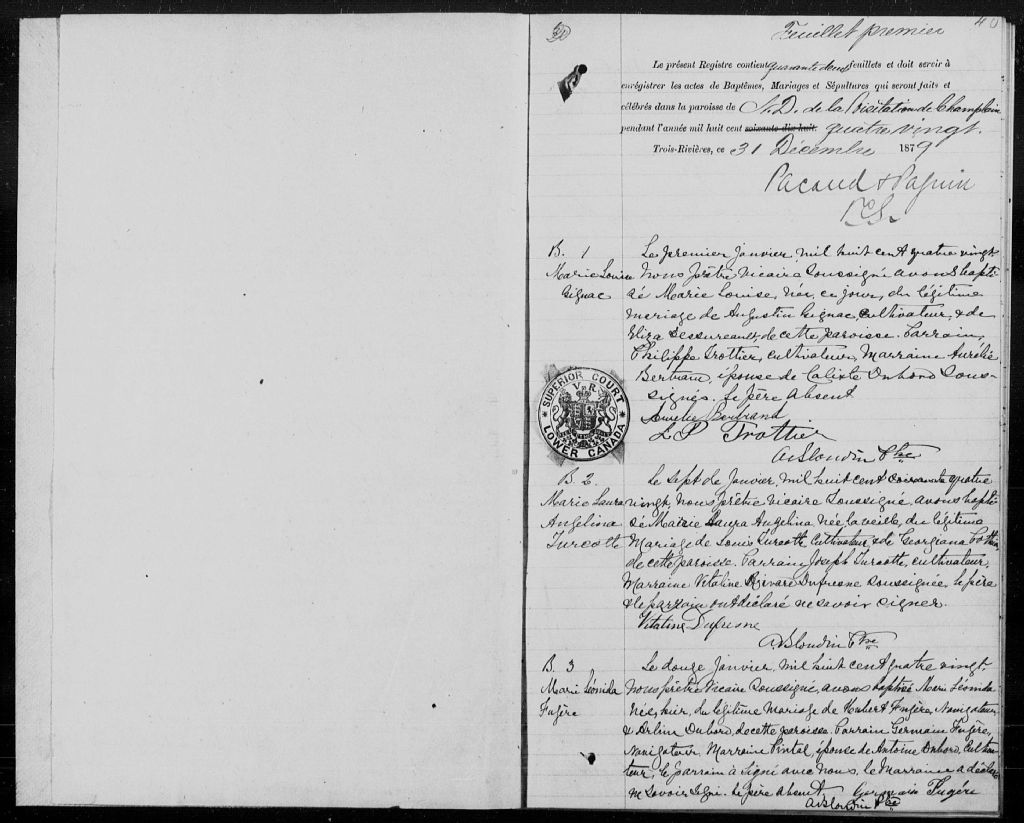 40
Feuillet premier
Le présent Registre contient quarante deux feuillets et doit servir à
enrégistrer les actes de Baptêmes, Mariages et Sépultures qui seront faits et
célébrés dans la paroisse de N. D. de la Visitation de Champlain
pendant l'année mil huit cent soixante dix-huit. quatre vingt.
Trois-Rivières, ce 31 Décembre 1879
Pacaud & Paquin
P.C.S.
B. 1
Marie Louise
Gignac
Le premier Janvier, mil huit cent quatre vingt
Nous prêtre Vicaire soussigné avons bapti
sé Marie Louise, née, ce jour, du légitime
mariage de Augustin Gignac, cultivateur, & de
Eliza Dessureault, de cette paroisse. Parrain,
Philippe Trottier, cultivateur, Marraine Aurélie
Bertrand, épouse de Calixte Dubord sous-
signés. le père absent
Aurélie Bertrand
L P Trottier
A Blondin Ptre
SUPERIOR COURT
V R
LOWER CANADA
B. 2.
Marie Laura
Angelina
Turcotte
Le sept de Janvier, mil huit cent soixante quatre
vingt, nous prêtre Vicaire soussigné, avons bapti
sé Marie Laura Angelina, née la veille, du légitime
Mariage de Louis Turcotte cultivateur & de Georgiana
de cette paroisse. Parrain Joseph Turcotte, cultivateur,
Marraine Vitaline Rivard Dufresne soussignée, le père
& le parrain ont déclaré ne savoir signer.
Vitaline Dufresne
A Blondin Ptre
B. 3
Marie Léonida
Fugère
Le douze Janvier, mil huit cent quatre vingt.
Nous prêtre Vicaire soussigné, avons baptisé Marie Léonida
née, hier, du légitime Mariage de Hubert Fugère, Navigateur,
& Arline Dubord, de cette paroisse. Parrain Germain Fugère,
Navigateur, Marraine Pintal, épouse de Antoine Dubord, Cultiva
teur, le parrain à signé avec nous, le Marraine a déclaré
ne savoir signer. le père absent. Germain Fugère
A Blondin Ptre